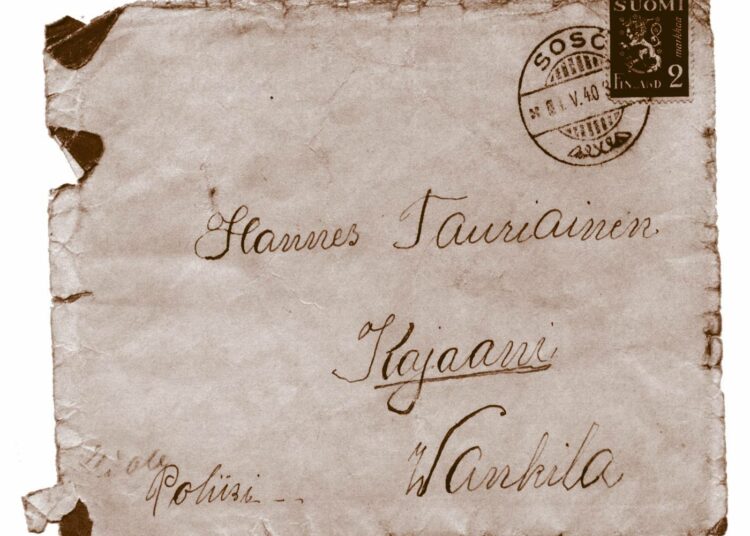 SUOMI
markkaa
FINLAND 2
V.40
Hannes Tauriainen
Kajaani
Wankila
Poliisi